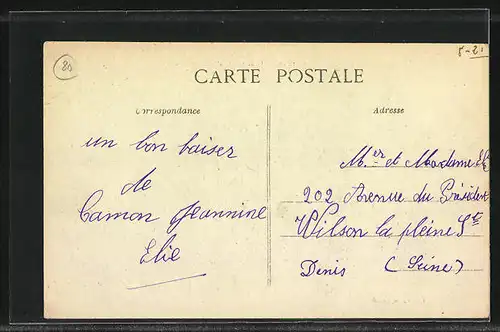 80
5-21
CARTE POSTALE
Correspondance
Adresse
un bon baiser
de
Camon Jeannine
Elie
Mr et Madame
202 Avenue du Président
Wilson la pleine St
Denis (Seine)